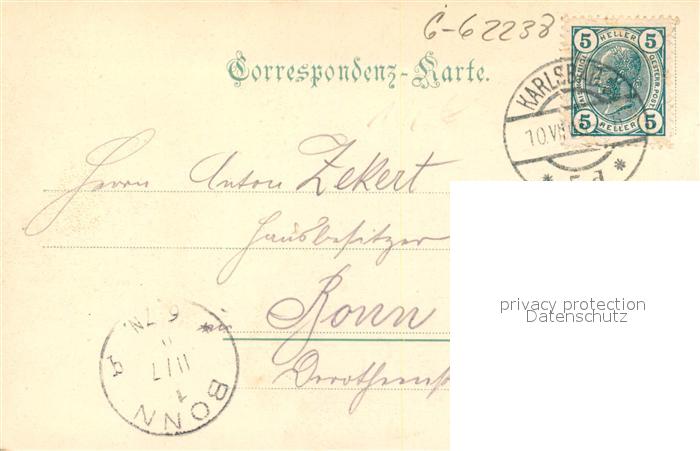 6-62238
Correspondenz-Karte.
5 HELLER 5
5 HELLER 5
KARLSBAD
10.VII
* 5 d *
Herrn Anton Zekert
Hausbesitzer
in Bonn
Dorotheenst
privacy protection
Datenschutz
BONN
11/7
6-7N.